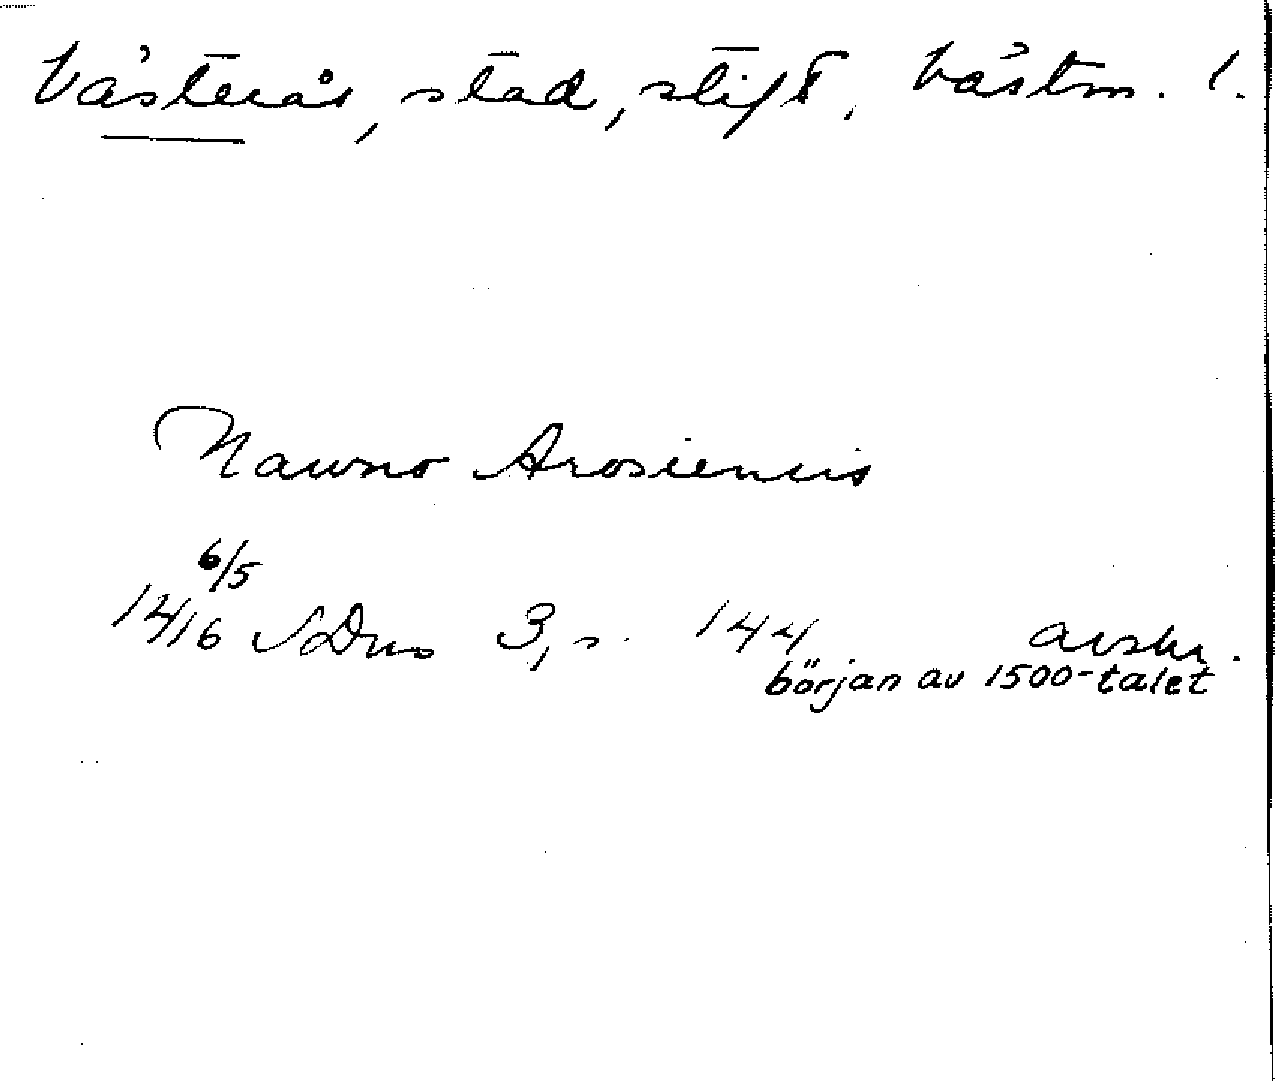 Västerås, stad, stift, Västm. l.
Nawno Arosiensis
6/5
1416 SDns 3, s. 144 avskr.
början av 1500-talet